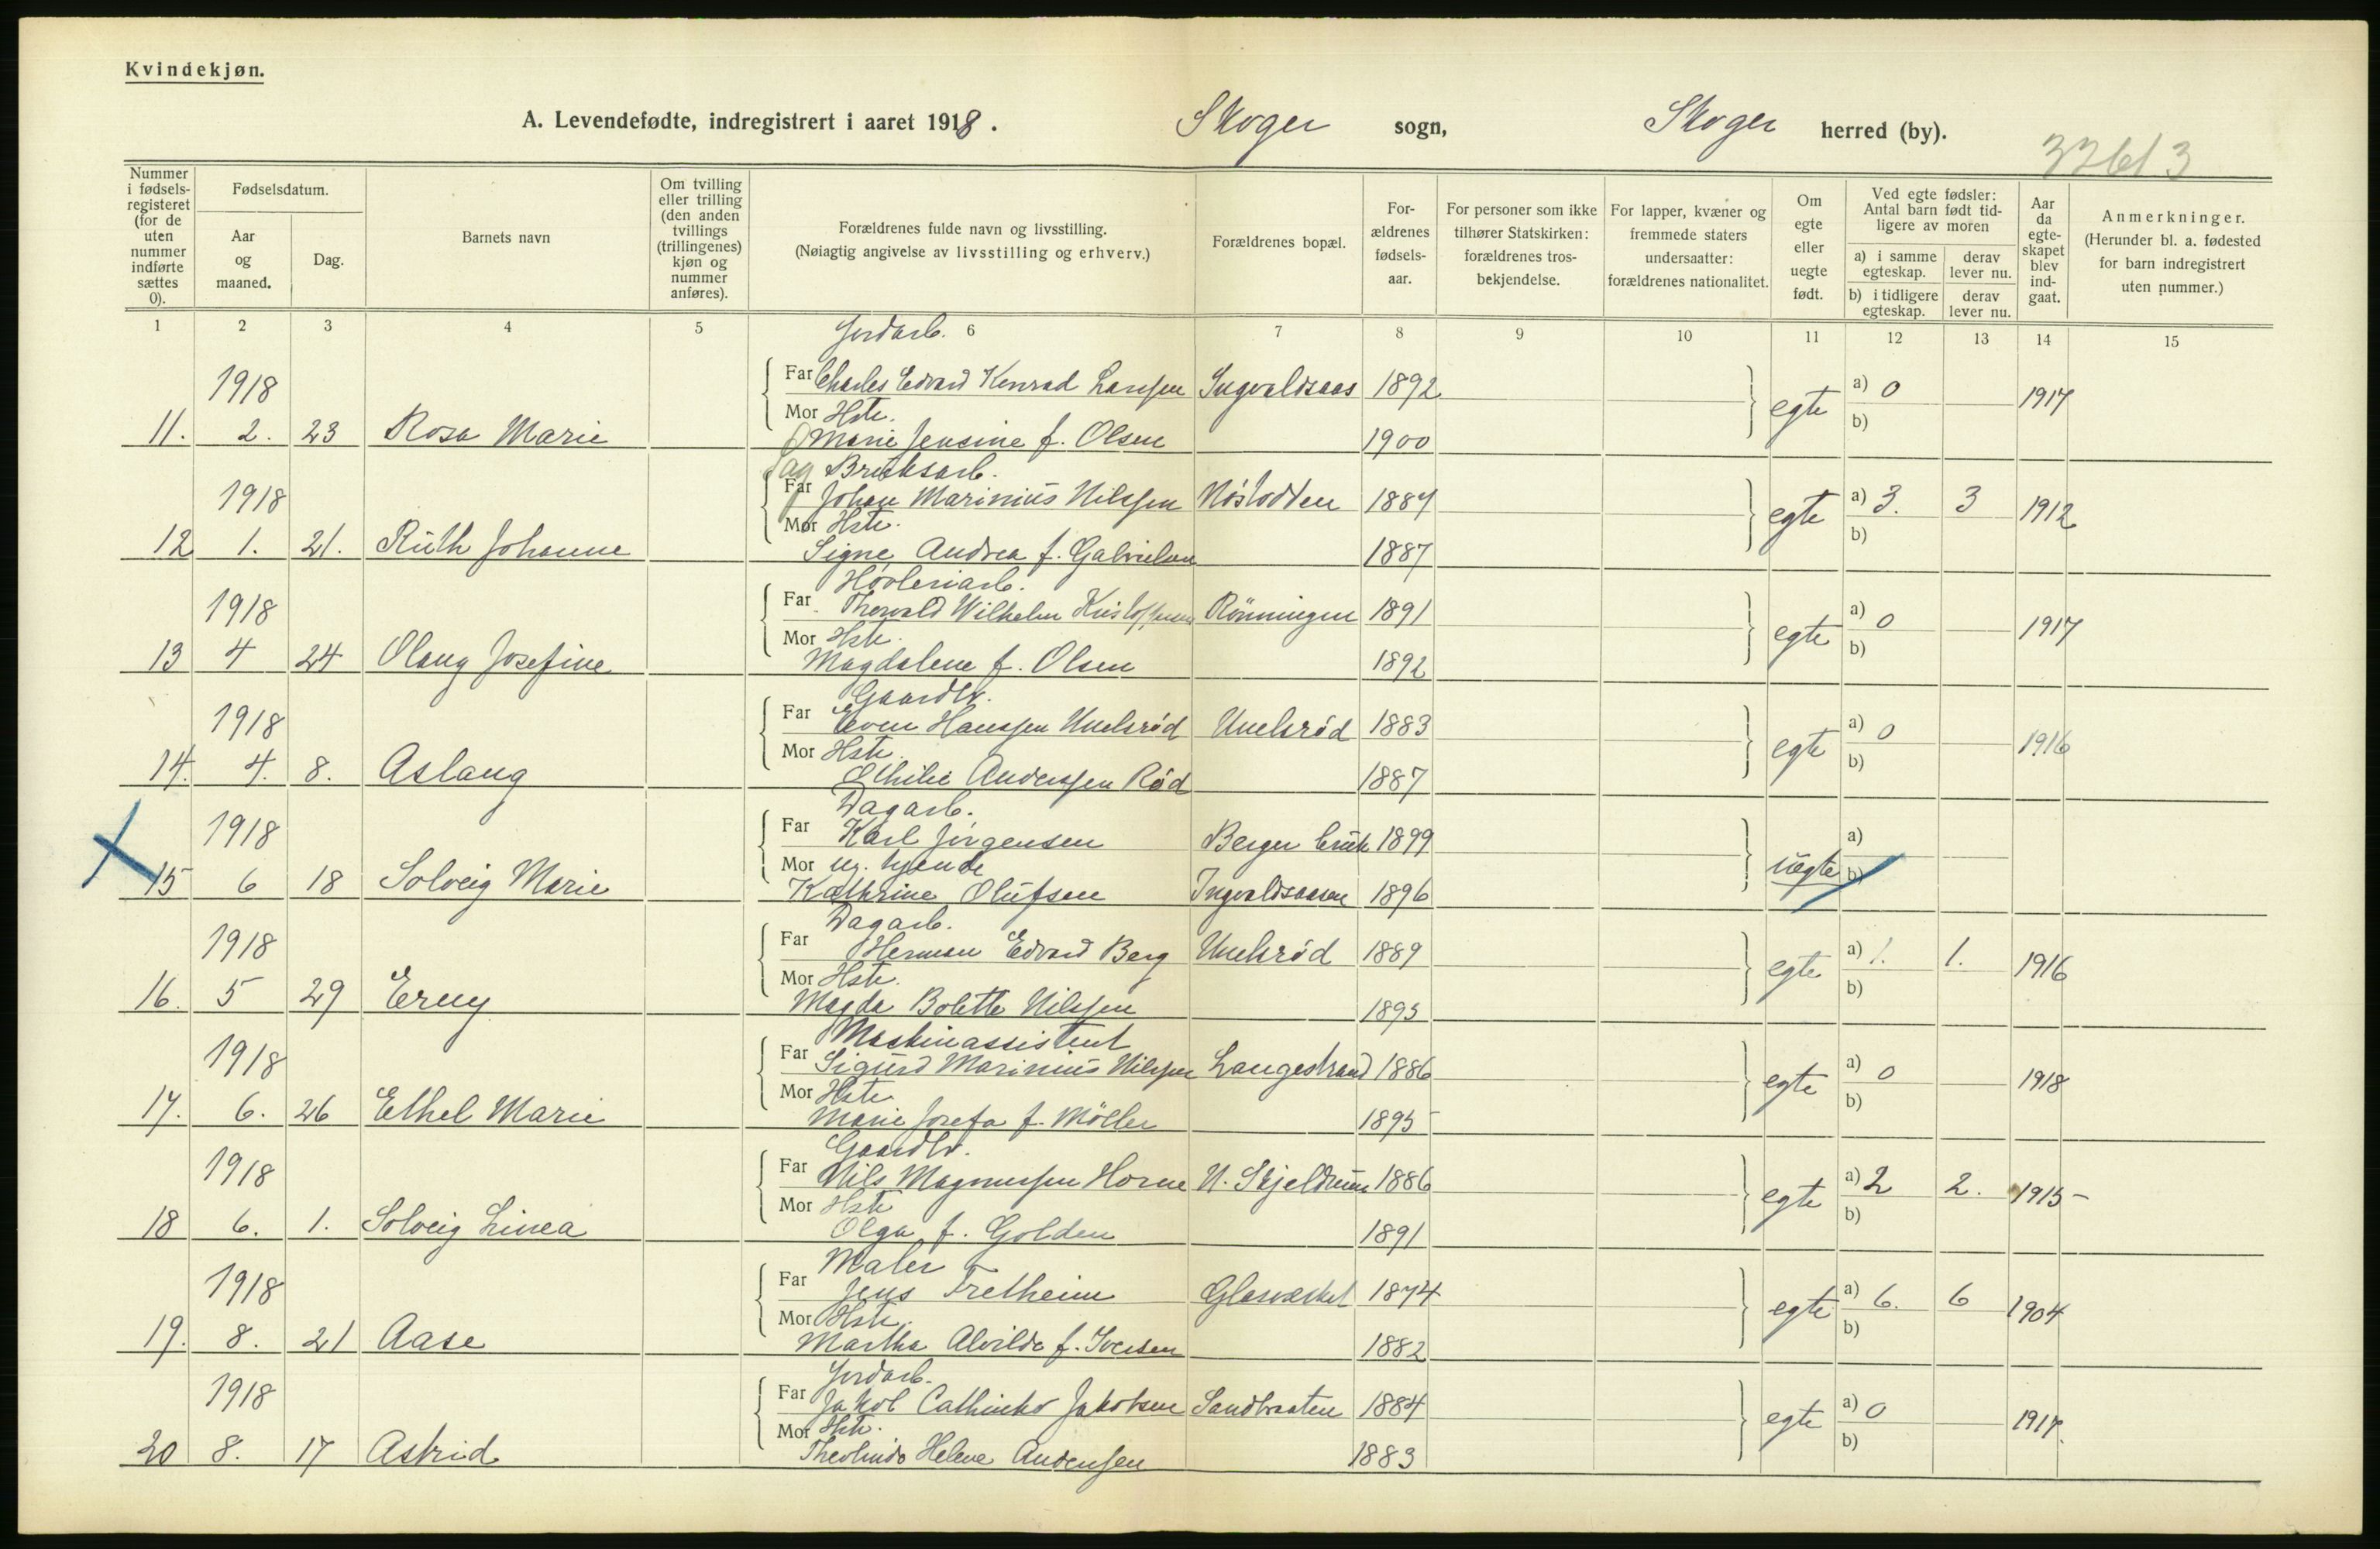 Kvindekjøn.
A. Levendefødte, indregistrert i aaret 1918. Skoger sogn, Skoger herred (by).
Nummer i fødselsregisteret (for de uten nummer indførte sættes 0).
Fødselsdatum.
Aar og maaned.
Dag.
Barnets navn
Om tvilling eller trilling (den anden tvillings (trillingenes) kjøn og nummer anføres).
Forældrenes fulde navn og livsstilling.
(Nøiagtig angivelse av livsstilling og erhverv.)
Forældrenes bopæl.
Forældrenes fødselsaar.
For personer som ikke tilhører Statskirken: forældrenes trosbekjendelse.
For lapper, kvæner og fremmede staters undersaatter: forældrenes nationalitet.
Om egte eller uegte født.
Ved egte fødsler: Antal barn født tidligere av moren
a) i samme egteskap. derav lever nu.
b) i tidligere egteskap. derav lever nu.
Aar da egteskapet blev indgaat.
Anmerkninger.
(Herunder bl. a. fødested for barn indregistrert uten nummer.)
1 2 3 4 5 6 7 8 9 10 11 12 13 14 15
Jordarb.
1918 Far Charles Edvard Konrad Larssen Ingvaldsaas 1892 egte a) 0 1917
Mor Hstr. b)
11. 2. 23 Rosa Marie Marie Jensine f. Olsen 1900
Bruksarb.
1918 Far Johan Marinius Nilssen Nøstodden 1887 egte a) 3. 3 1912
Mor Hstr. b)
12 1. 21. Ruth Johanne Signe Andrea f. Gabrielsen 1887
Høvleriarb.
1918 Far Thorvald Wilhelm Kristoffersen Rønningen 1891 egte a) 0 1917
Mor Hstr. b)
13 4 24 Olaug Josefine Magdalene f. Olsen 1892
Gaardbr.
1918 Far Even Hanssen Unelsrød Unelsrød 1883 egte a) 0 1916
Mor Hstr. b)
14. 4. 8. Aslaug Anderssen Rød 1887
Dagarb.
1918 Far Karl Jørgensen Berger bruk 1899 uegte a)
Mor ug. tjende b)
15 6 18 Solveig Marie Kathrine Olufsen Ingvaldsaasen 1896
Dagarb.
1918 Far Herman Edvard Berg Unelsrød 1889 egte a) 1. 1. 1916
Mor Hstr. b)
16. 5 29 Erny Magda Bolette Nilssen 1895
Maskinassistent
1918 Far Sigurd Marinius Nilssen Langestrand 1886 egte a) 0 1918
Mor Hstr. b)
17. 6. 26 Ethel Marie Marie Josefa f. Möller 1895
Gaardbr.
1918 Far Nils Magnussen Horne N. Skjeldrum 1886 egte a) 2 2. 1915
Mor Hstr b)
18 6. 1. Solveig Linea Olga f. Golden 1891
Maler
1918 Far Jens Fretheim Glasværket 1874 egte a) 6. 6 1904
Mor Hstr. b)
19. 8. 21 Aase Martha Alvilde f. Iversen 1882
Jordarb.
1918 Far Jakob Cathinko Jakobsen Sandbraaten 1884 egte a) 0 1917.
Mor Hstr. b)
20 8. 17 Astrid Theolinda Helene Anderssen 1883